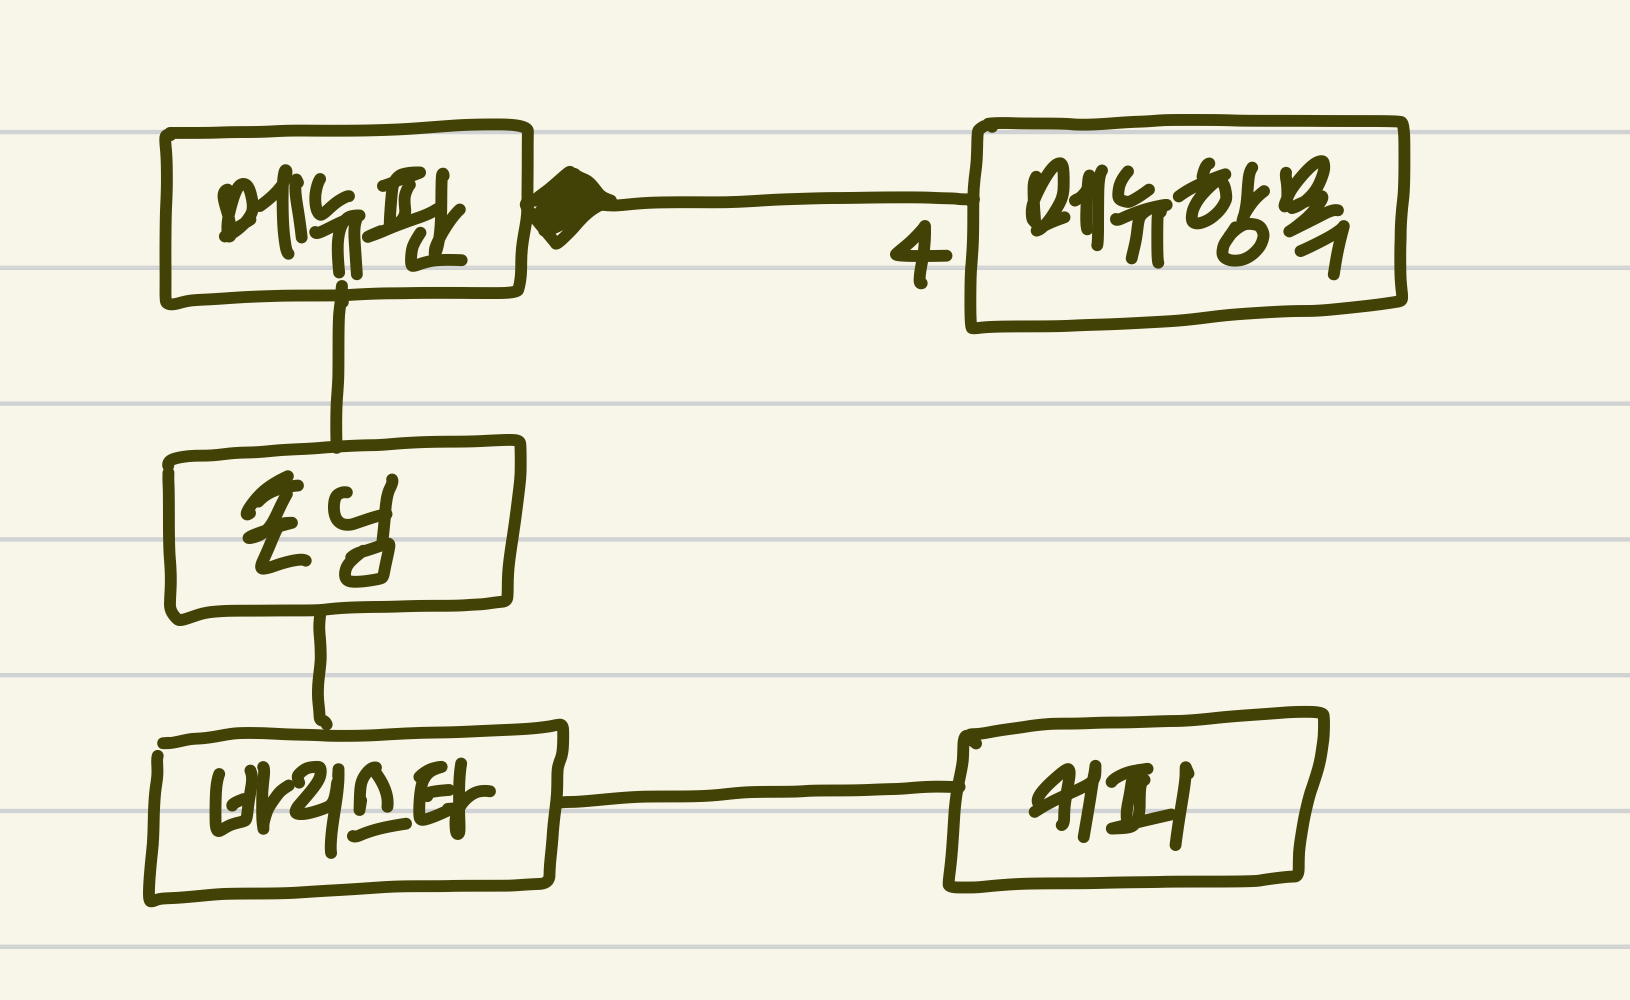 메뉴판
메뉴항목
4
손님
바리스타
커피